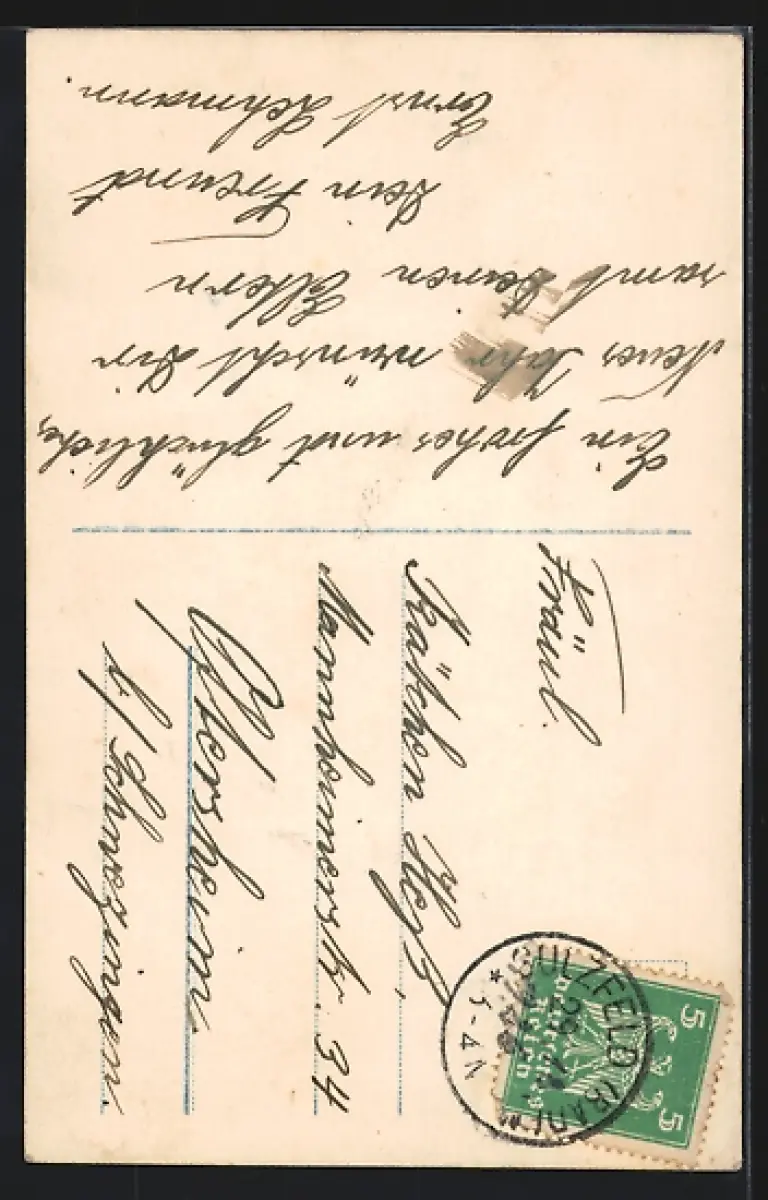 Ein frohes und glückliches
Neues Jahr wünscht Dir
samt Deinen Eltern
Dein Freund
Ernst Lehmann.
Fräul.
Käthchen Hoß,
Mannheimerstr. 34
Oftersheim
b/ Schwezingen.
SULZFELD (BADEN)
29 12
3-4 N
5 5
Deutsches
Reich